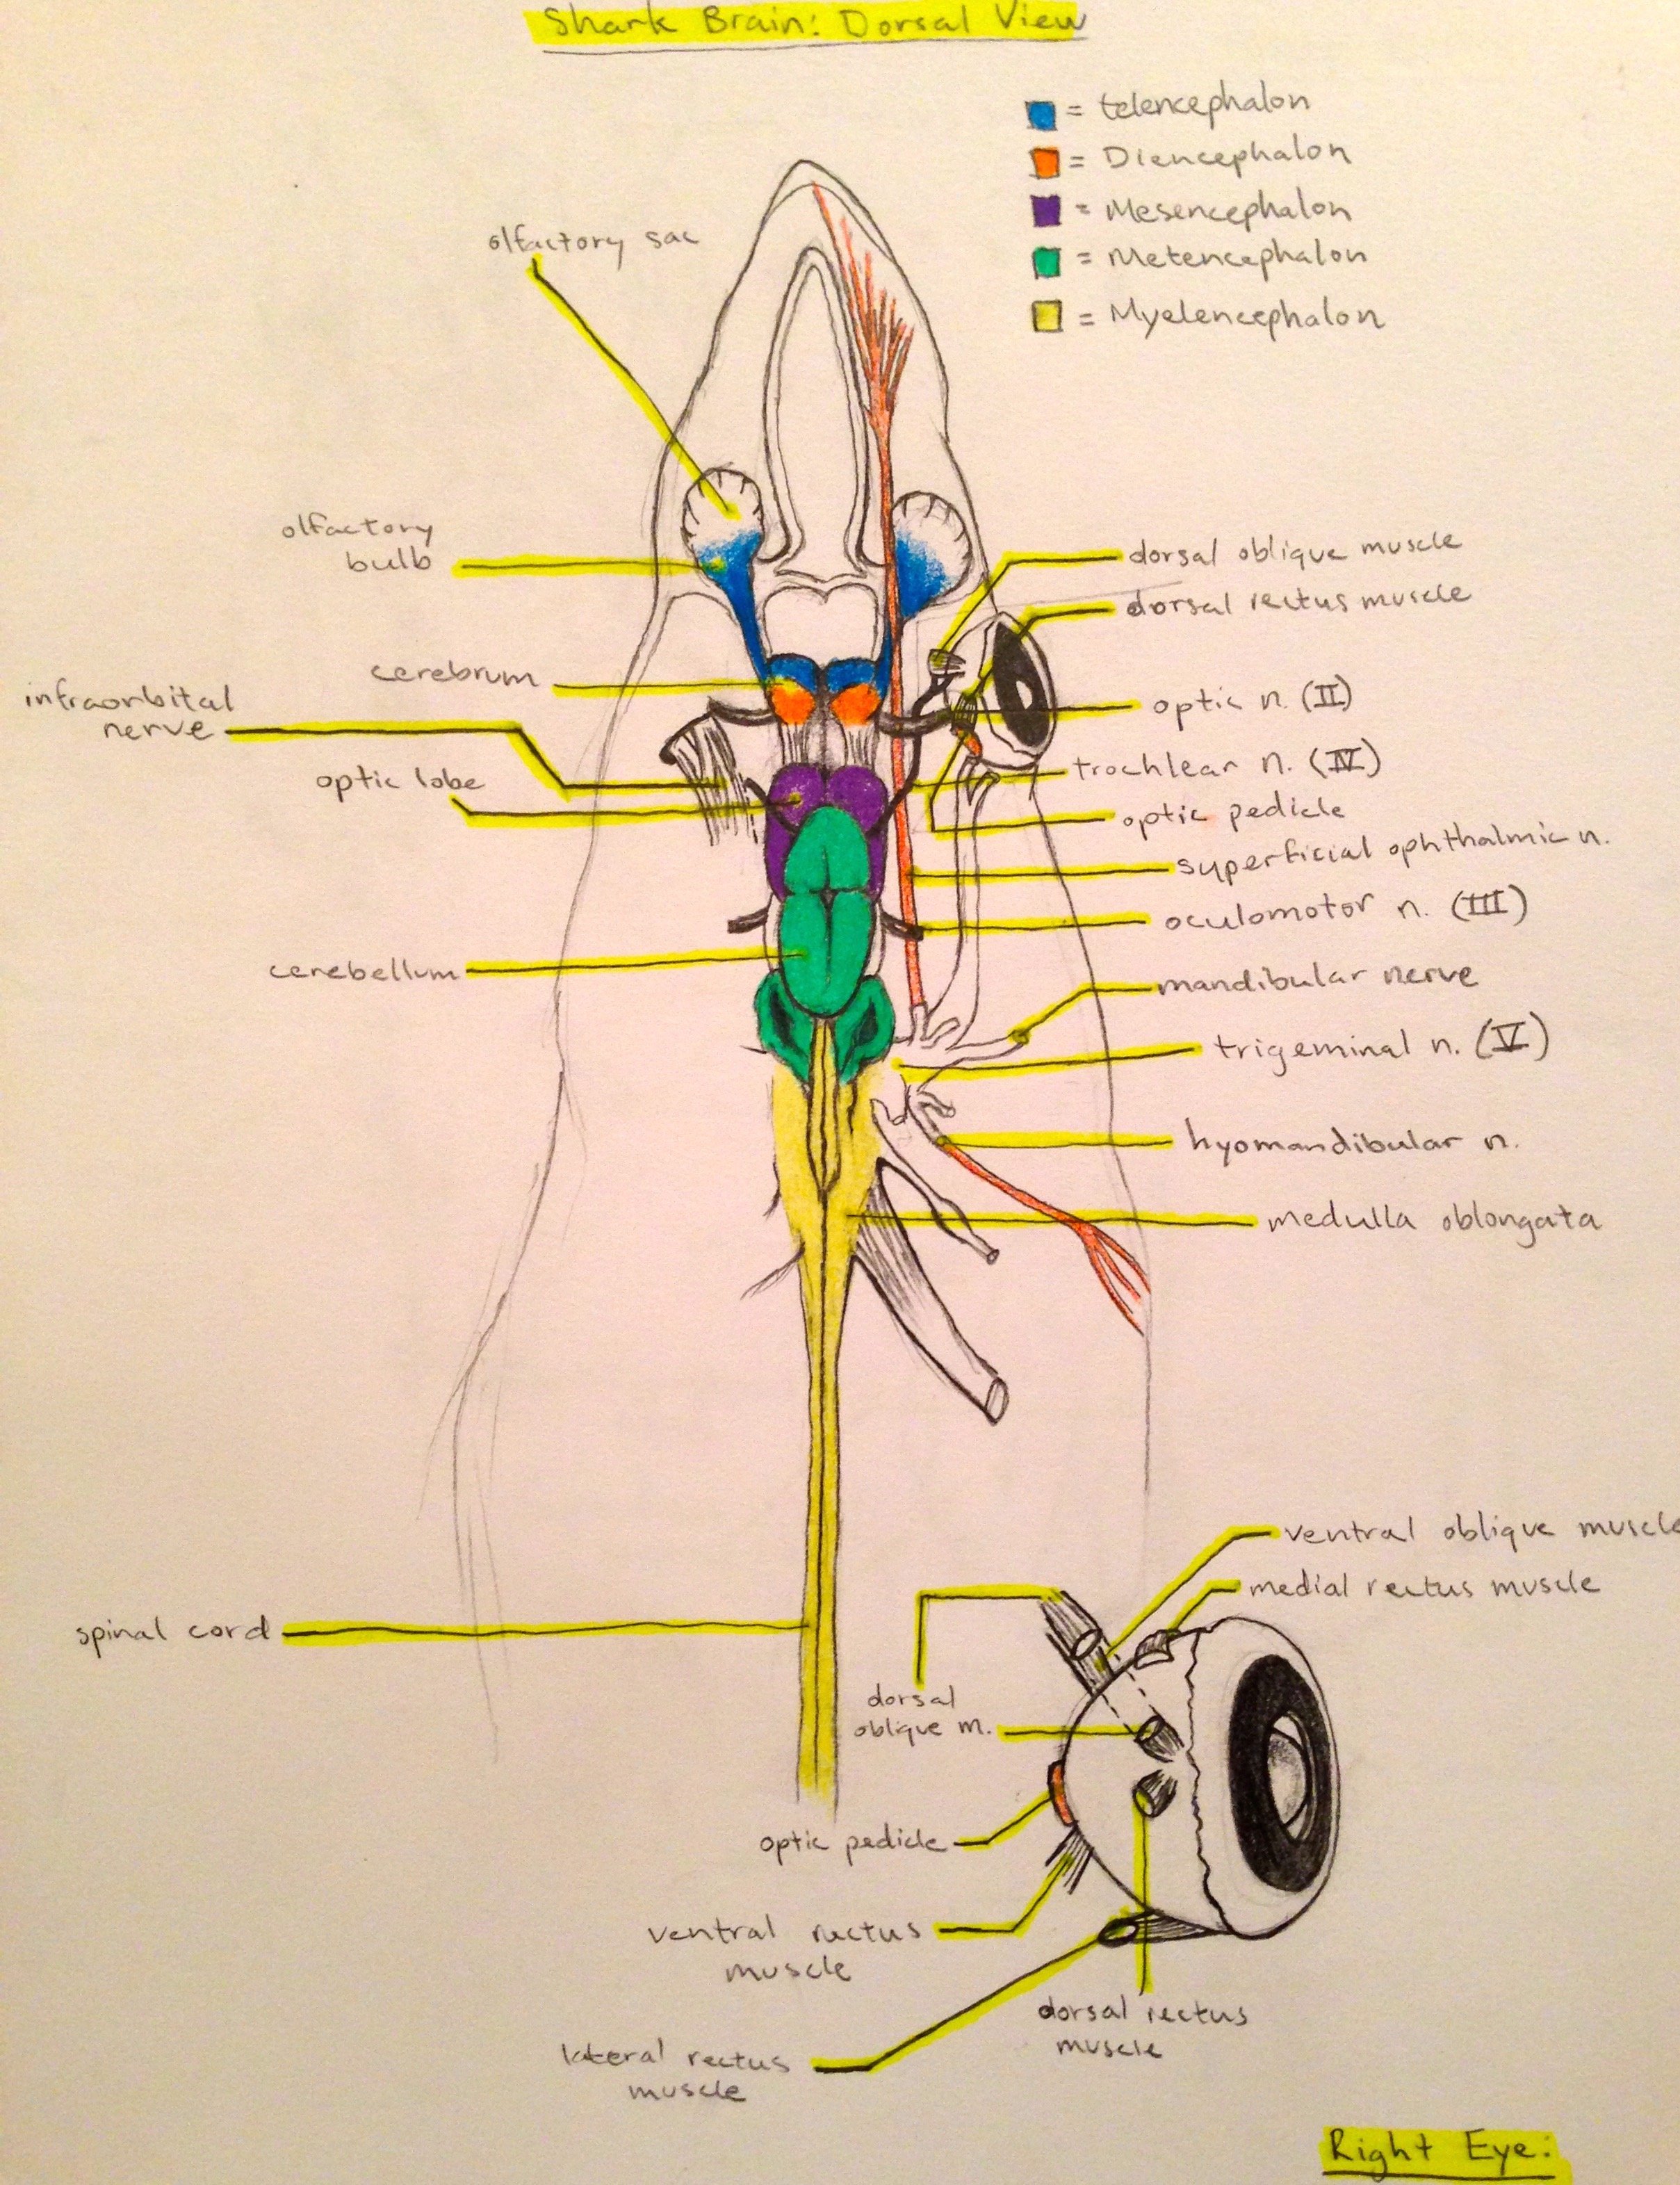 Shark Brain: Dorsal View
= telencephalon
= Diencephalon
= Mesencephalon
= Metencephalon
= Myelencephalon
olfactory sac
olfactory
bulb
cerebrum
infraorbital
nerve
optic lobe
cerebellum
spinal cord
dorsal oblique muscle
dorsal rectus muscle
optic n. (II)
trochlear n. (IV)
optic pedicle
superficial ophthalmic n.
oculomotor n. (III)
mandibular nerve
trigeminal n. (V)
hyomandibular n.
medulla oblongata
ventral oblique muscle
medial rectus muscle
dorsal
oblique m.
optic pedicle
ventral rectus
muscle
dorsal rectus
muscle
lateral rectus
muscle
Right Eye: